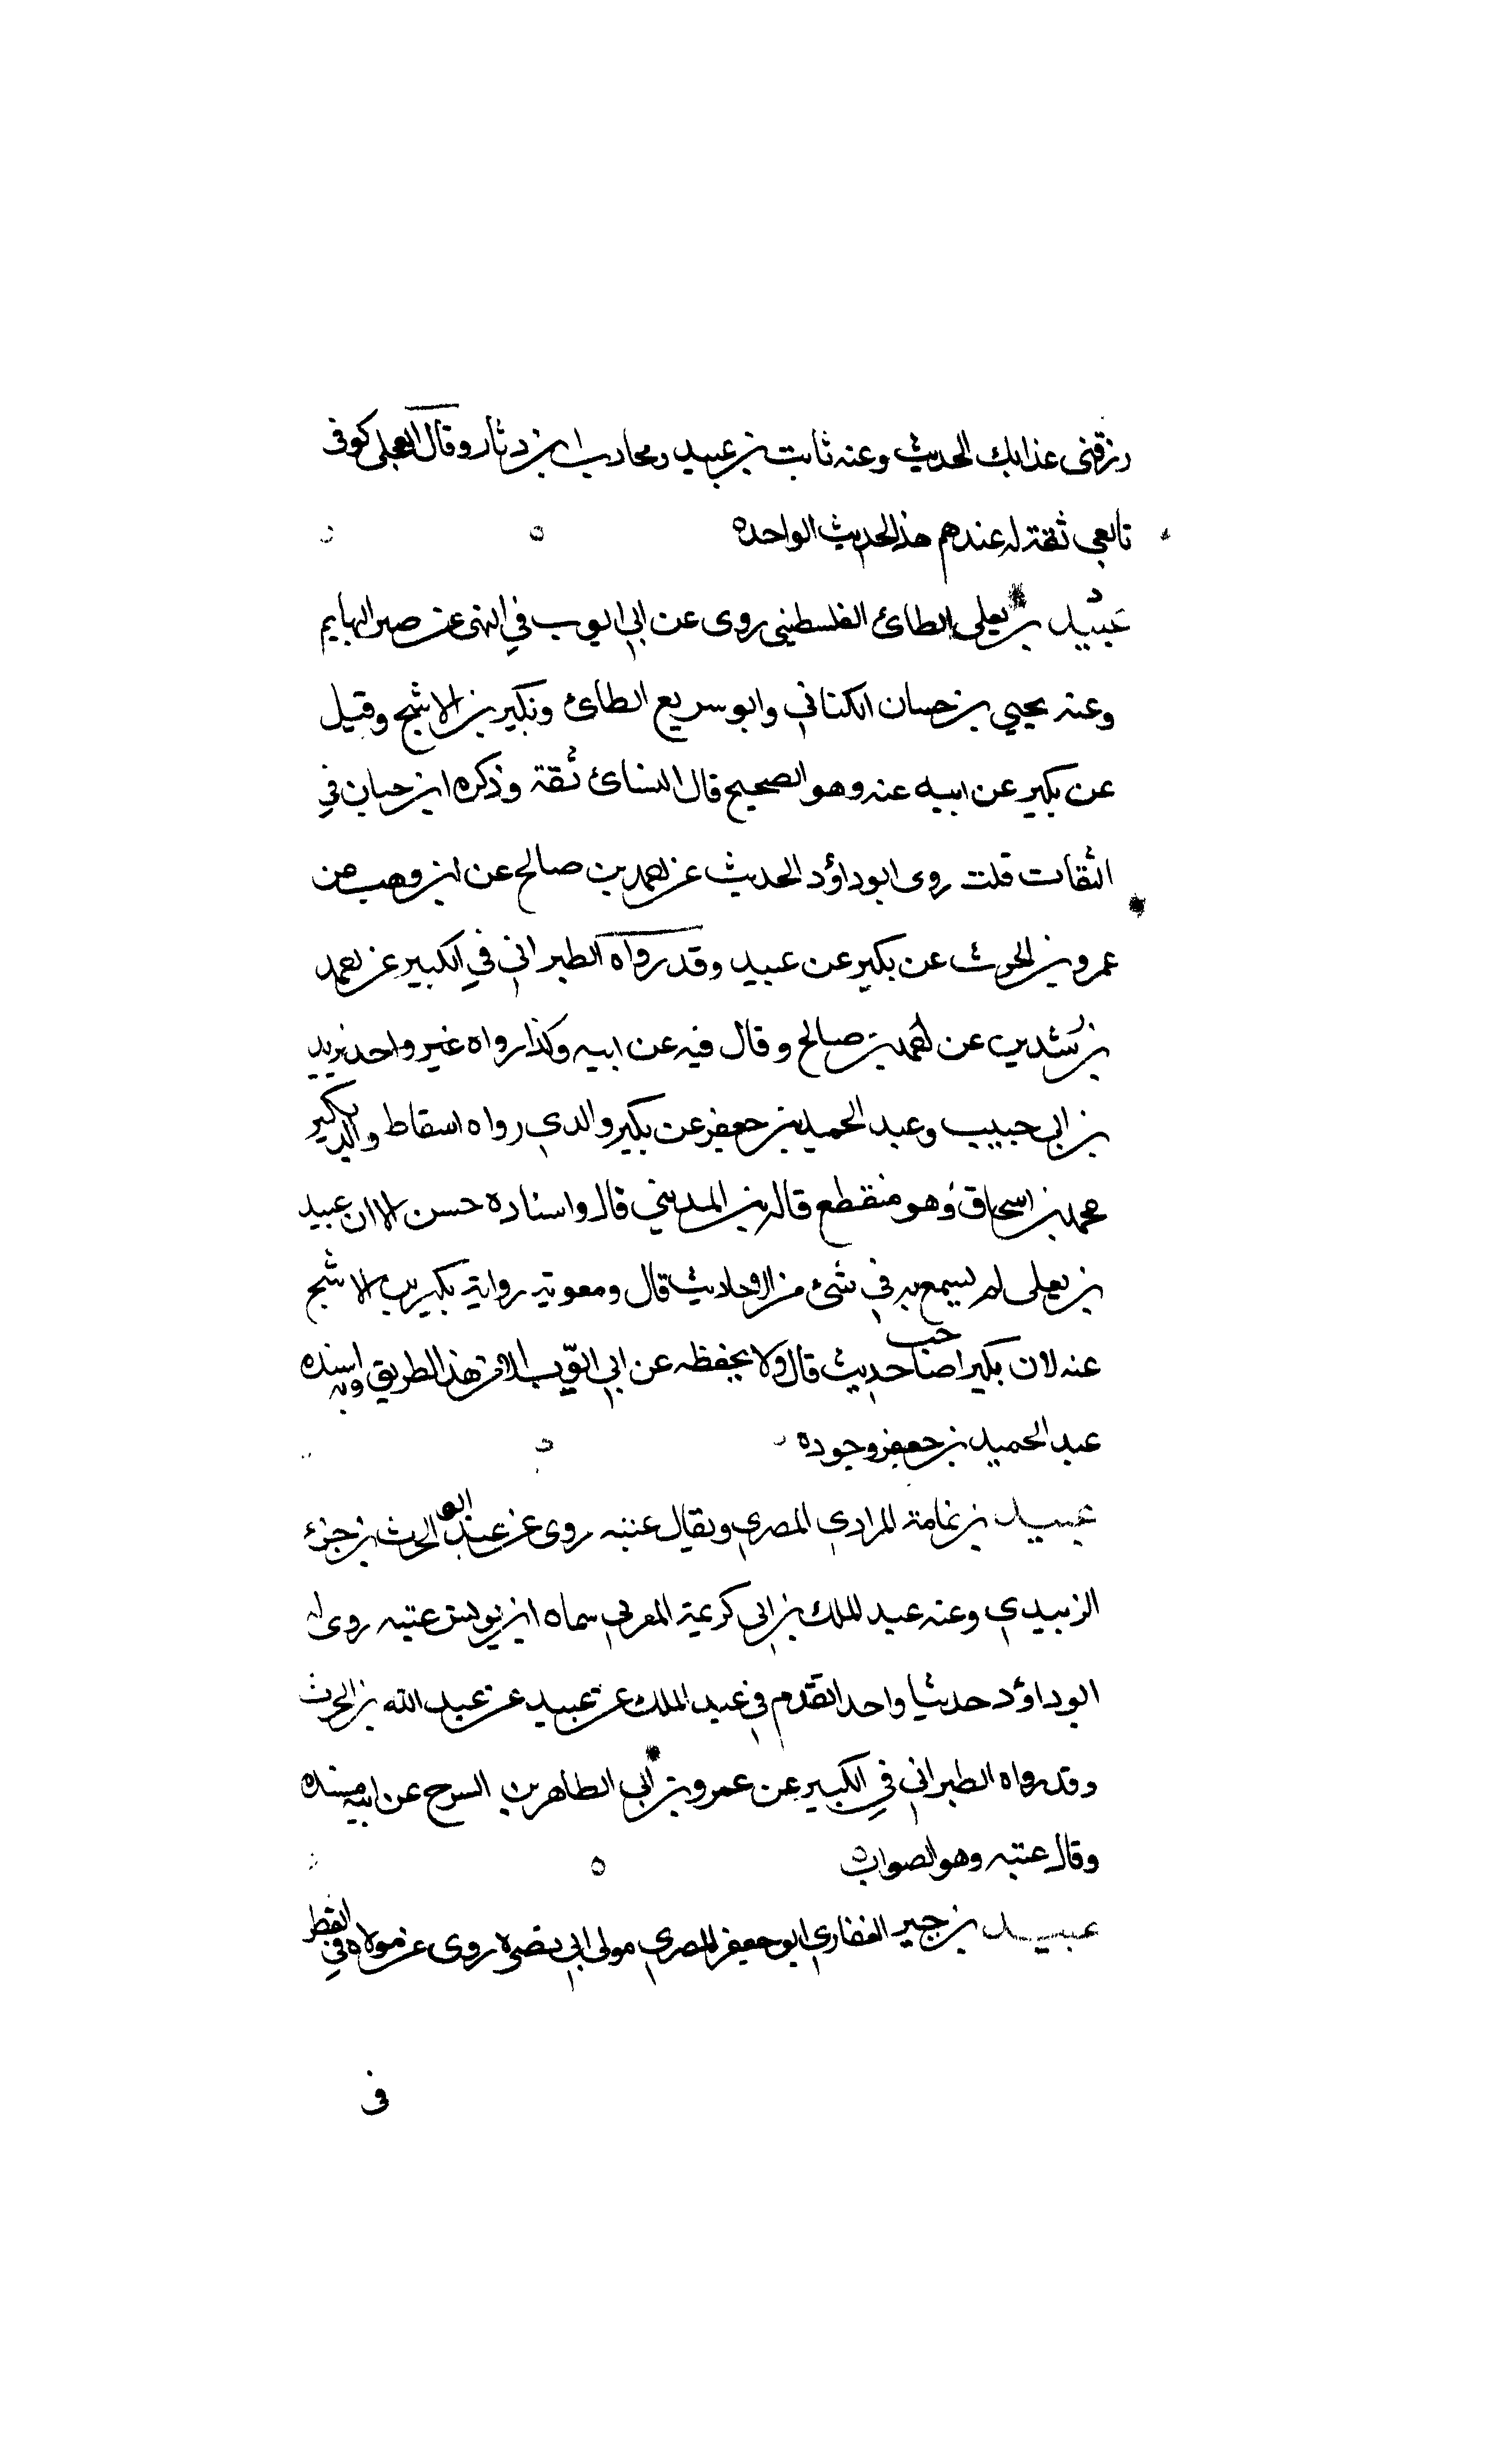 وقنى عذابك الحديث وعنه ثابت بن عبيد ومحارب ابن دثار وقال العجلى كوفى
تابعي ثقة له عندهم هذا الحديث الواحد ه
عبيد بن يعلى الطائ الفلسطيني روى عن ابي ايوب في النهى عن صبر البهايم
وعنه يحيي بن حسان الكناني وابو سريع الطائ وبكير بن الاشج وقيل
عن بكير عن ابيه عنه وهو الصحيح قال النسائ ثقة وذكره ابن حبان في
الثقات قلت روى ابو داؤد الحديث عن احمد بن صالح عن ابن وهب عن
عمرو بن الحرث عن بكير عن عبيد وقد رواه الطبراني في الكبير عن احمد
بن رشدين عن احمد بن صالح وقال فيه عن ابيه وكذا رواه غير واحد يزيد
بن ابي حبيب وعبد الحميد بن جعفر عن بكير والذي رواه اسقاط والد بكير
محمد بن اسحاق وهو منقطع قاله بن المديني قال واسناده حسن الا ان عبيد
بن يعلى لم يسمع به في شئ من الاحاديث قال ومعوته رواية بكير بن الاشج
عنه لان بكيرا صاحب حديث قال ولا يحفظه عن ابي ايوب الا من هذا الطريق واسنده
عبد الحميد بن جعفر وجوده
عبيد بن ثمامة المرادي المصري ويقال عتبه روى عن عبد الله الحرث بن جزء
الزبيدي وعنه عبد الملك بن ابي كريمة المغربي سماه ابن يونس عتبه روى له
ابو داؤد حديثا واحدا تقدم في عبد الملك عن عبيد عن عبد الله بن الحرث
وقد رواه الطبراني في الكبير عن عمرو بن ابي الطاهر بن السرح عن ابيه بسنده
وقال عتبه وهو الصواب
عبيد بن جبر الغفاري ابو جعفر المصري مولى ابي بصره روى عن مولاه في الفطر
فى